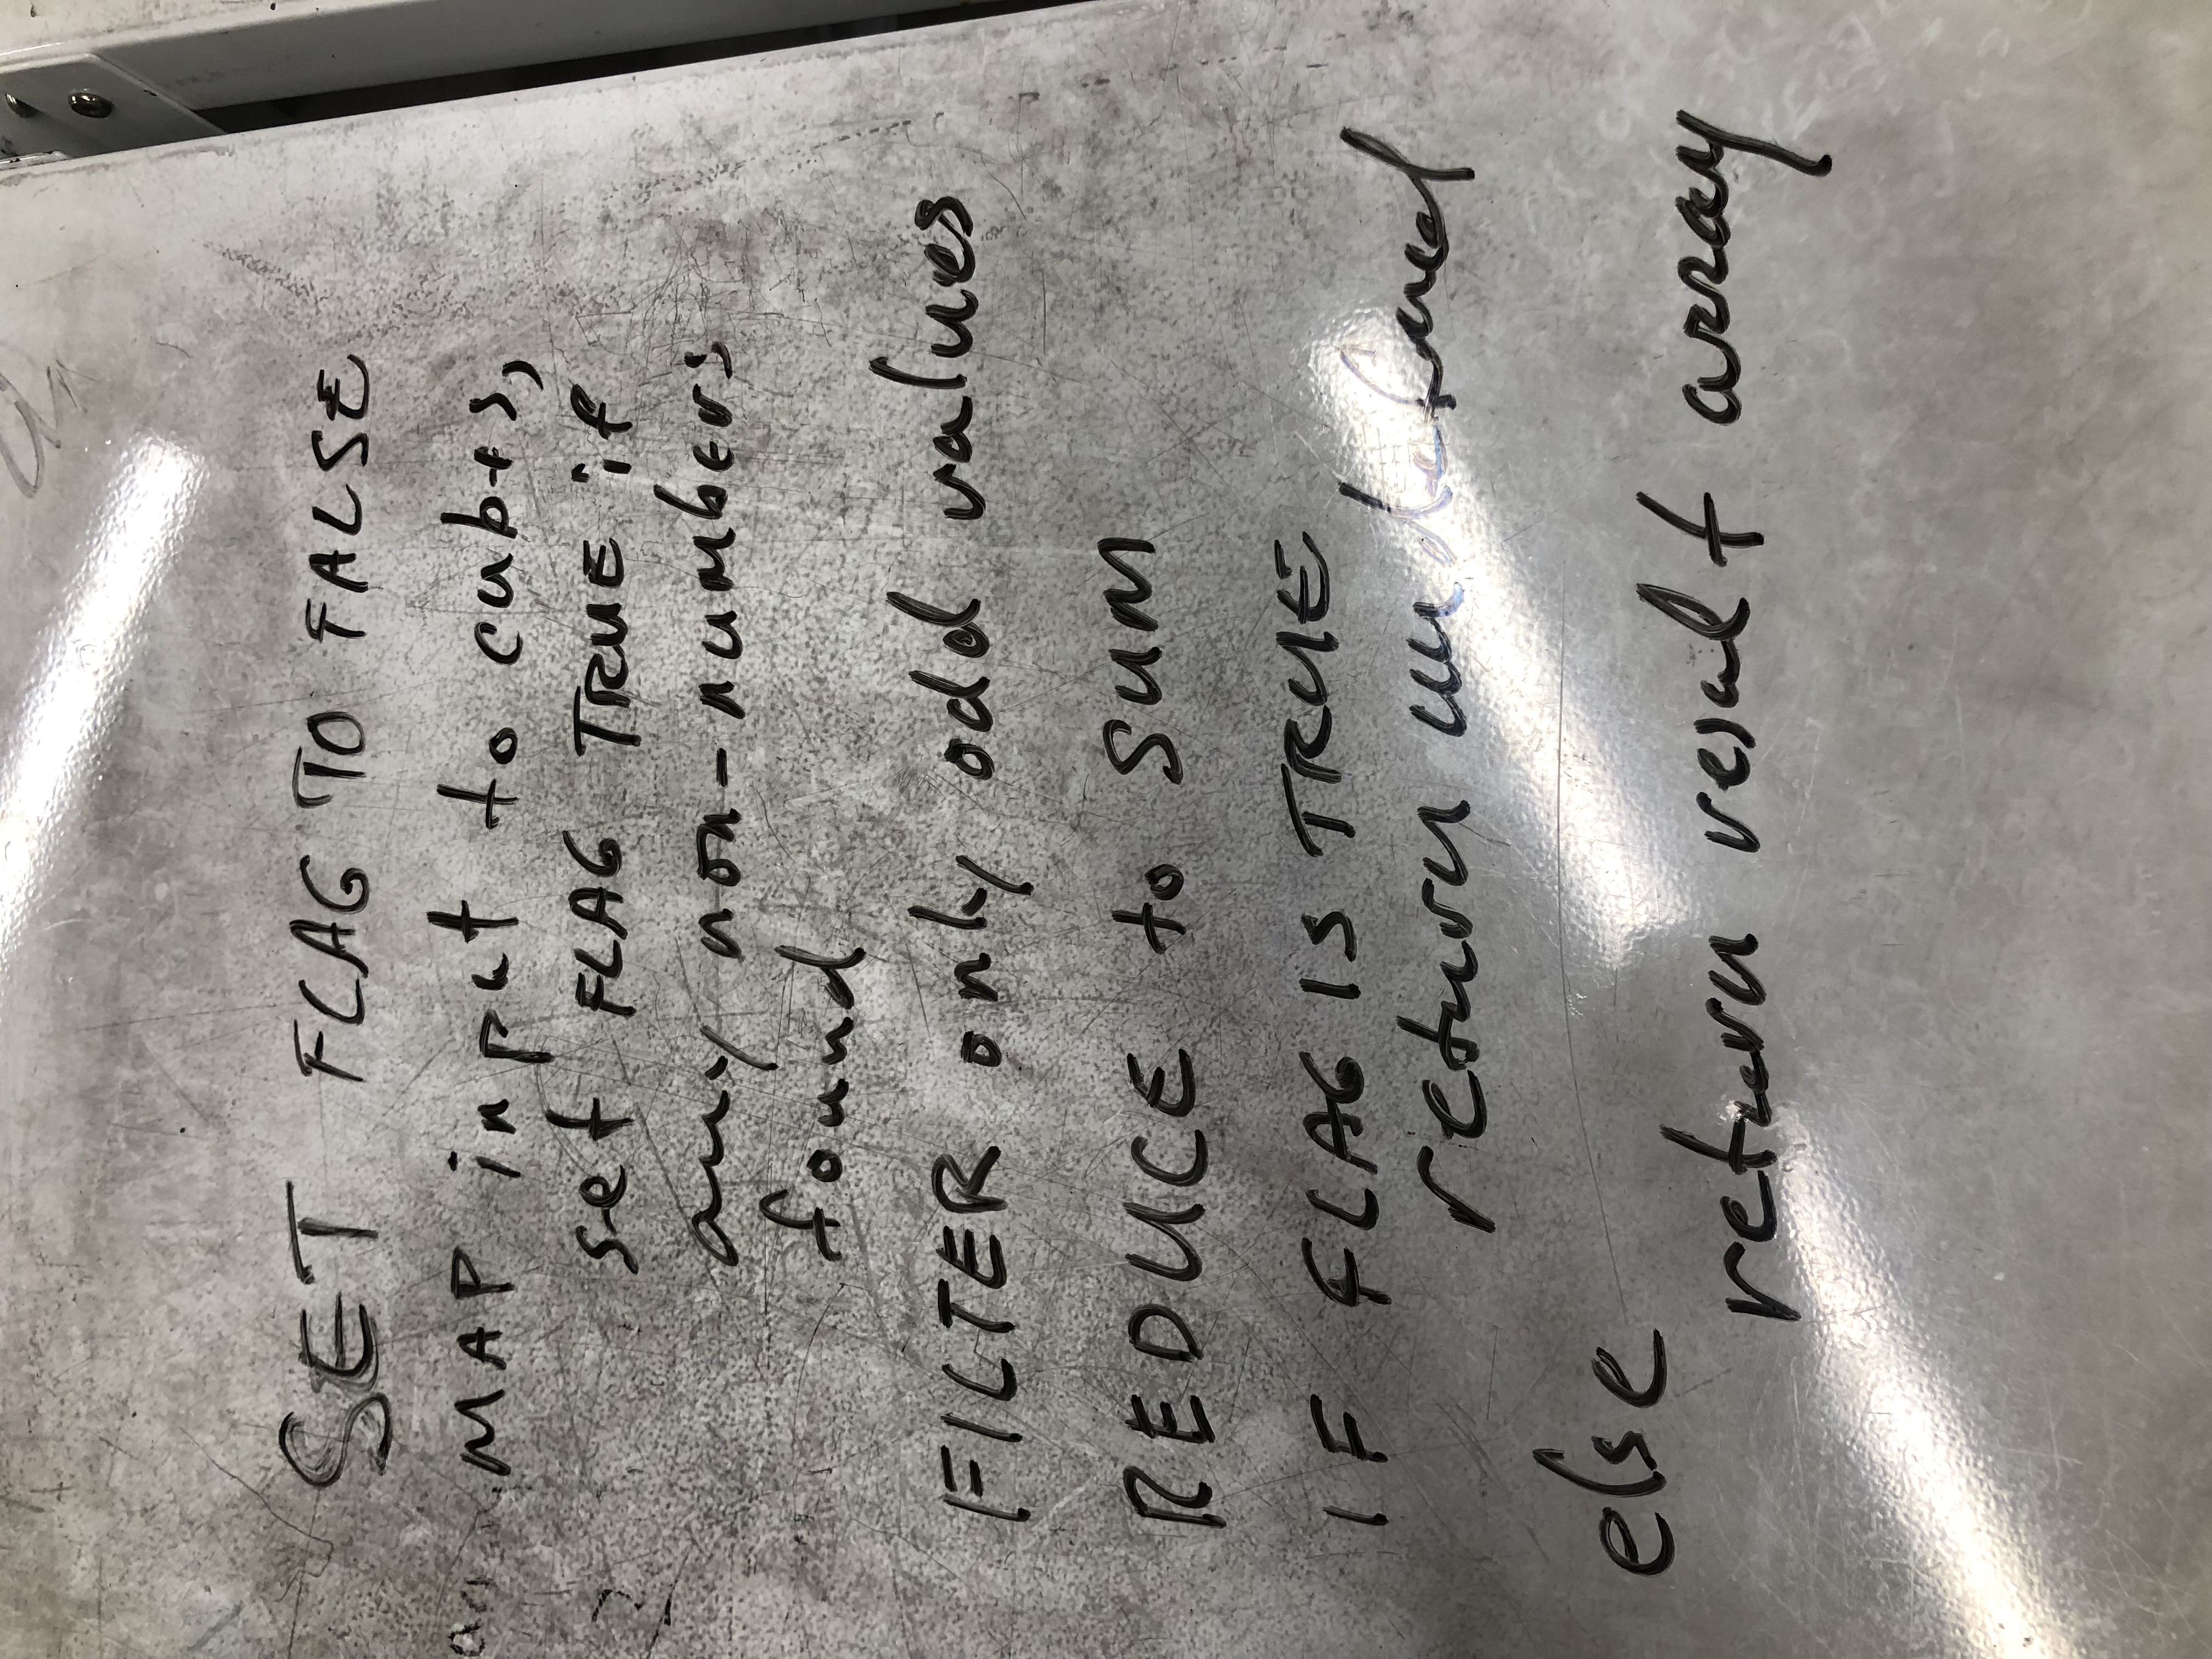 SET FLAG TO FALSE
MAP input to cubes,
set FLAG TRUE if
any non-numbers
found
FILTER only odd values
REDUCE to SUM
IF FLAG IS TRUE
return undefined
else
return result array